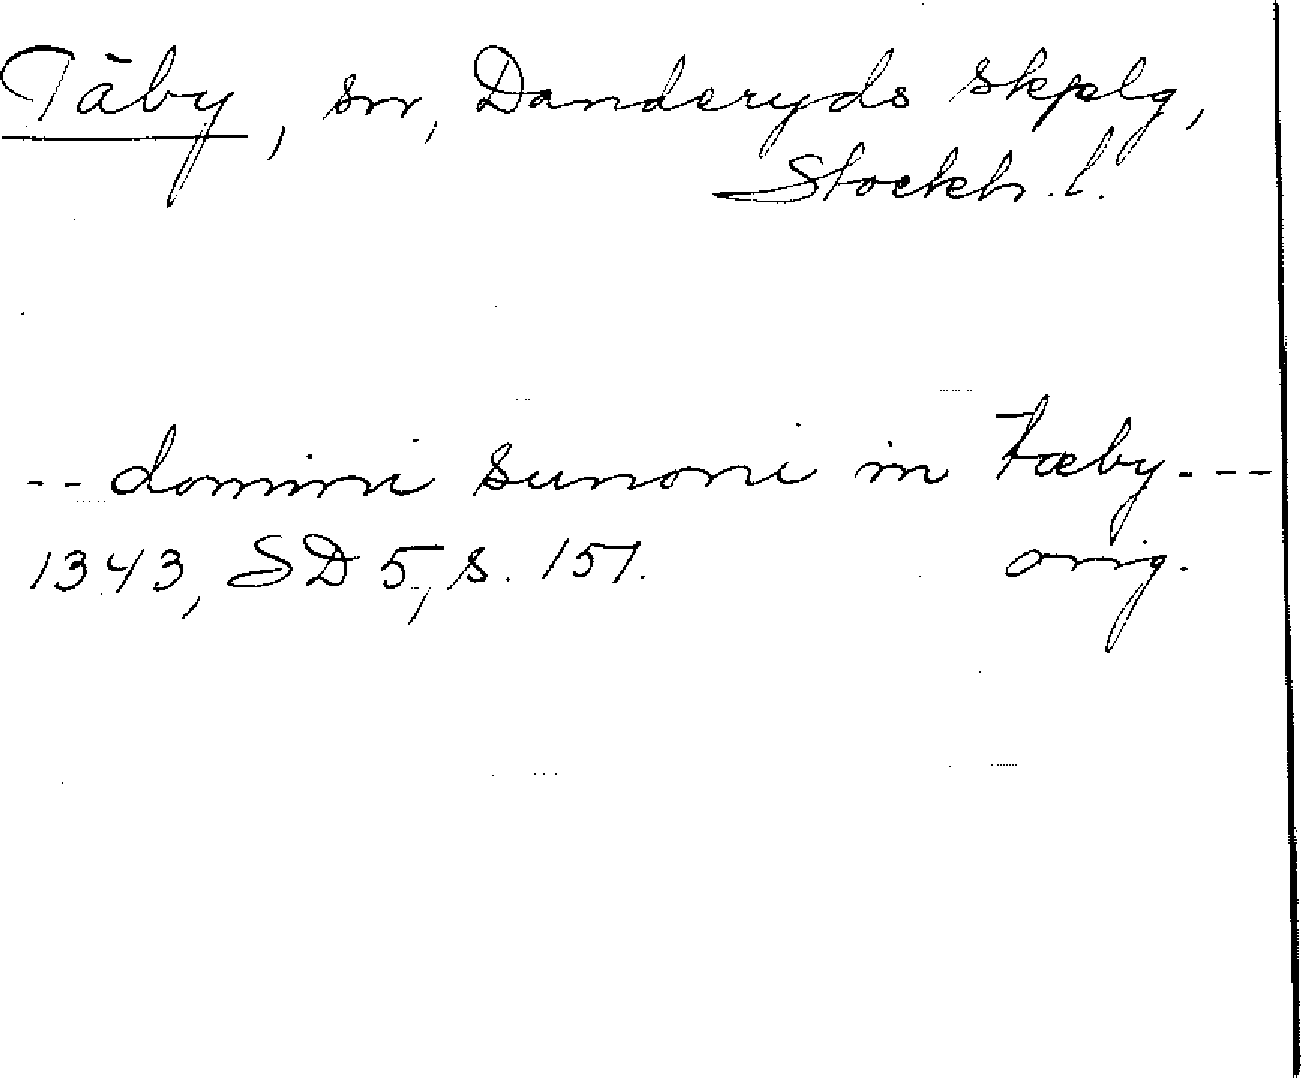 Täby, sn, Danderyds skplg,
Stockh. l.
-- domini sunoni in tæby. ---
1343, SD 5, s. 151. orig.